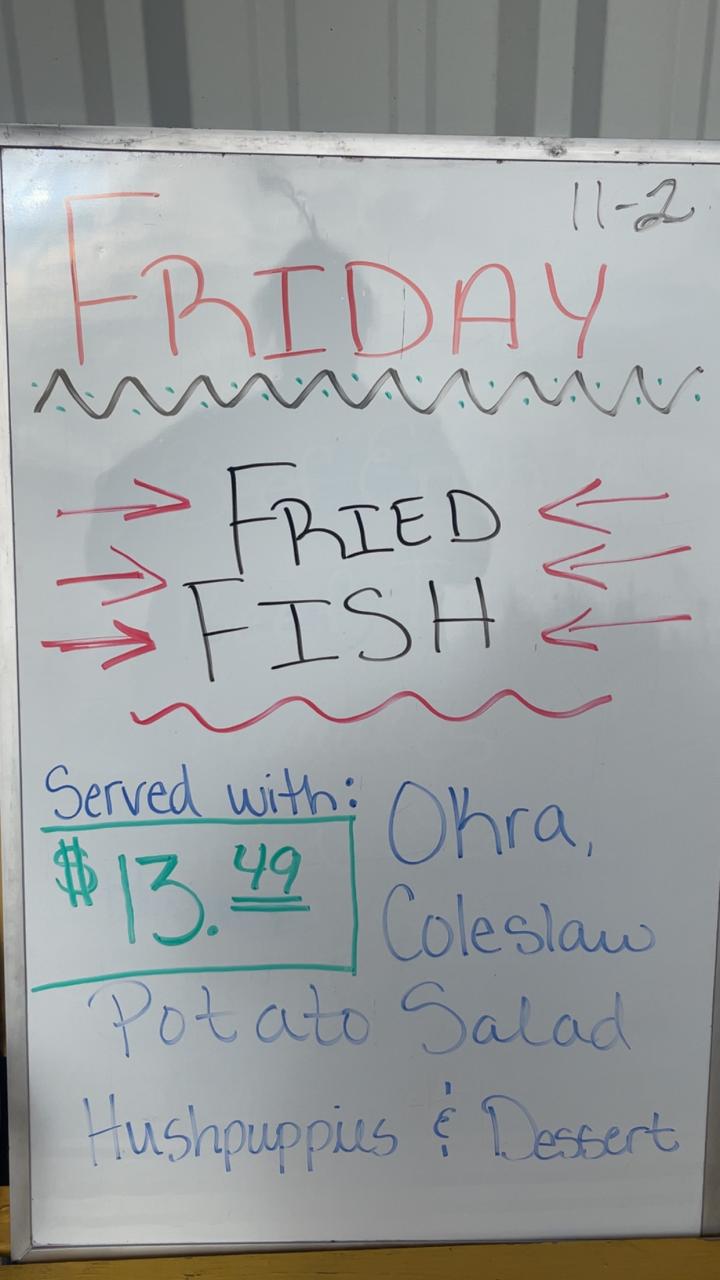 11-2
FRIDAY
FRIED
FISH
Served with: Okra,
$13.49
Coleslaw
Potato Salad
Hushpuppies & Dessert